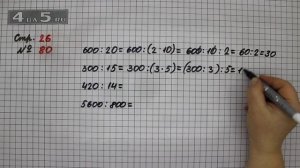 4DU5.RU
Стр. 26
№ 80
600:20=600:(2·10)=600:10:2=60:2=30
300:15=300:(3·5)=(300:3):5=1
420:14=
5600:800=